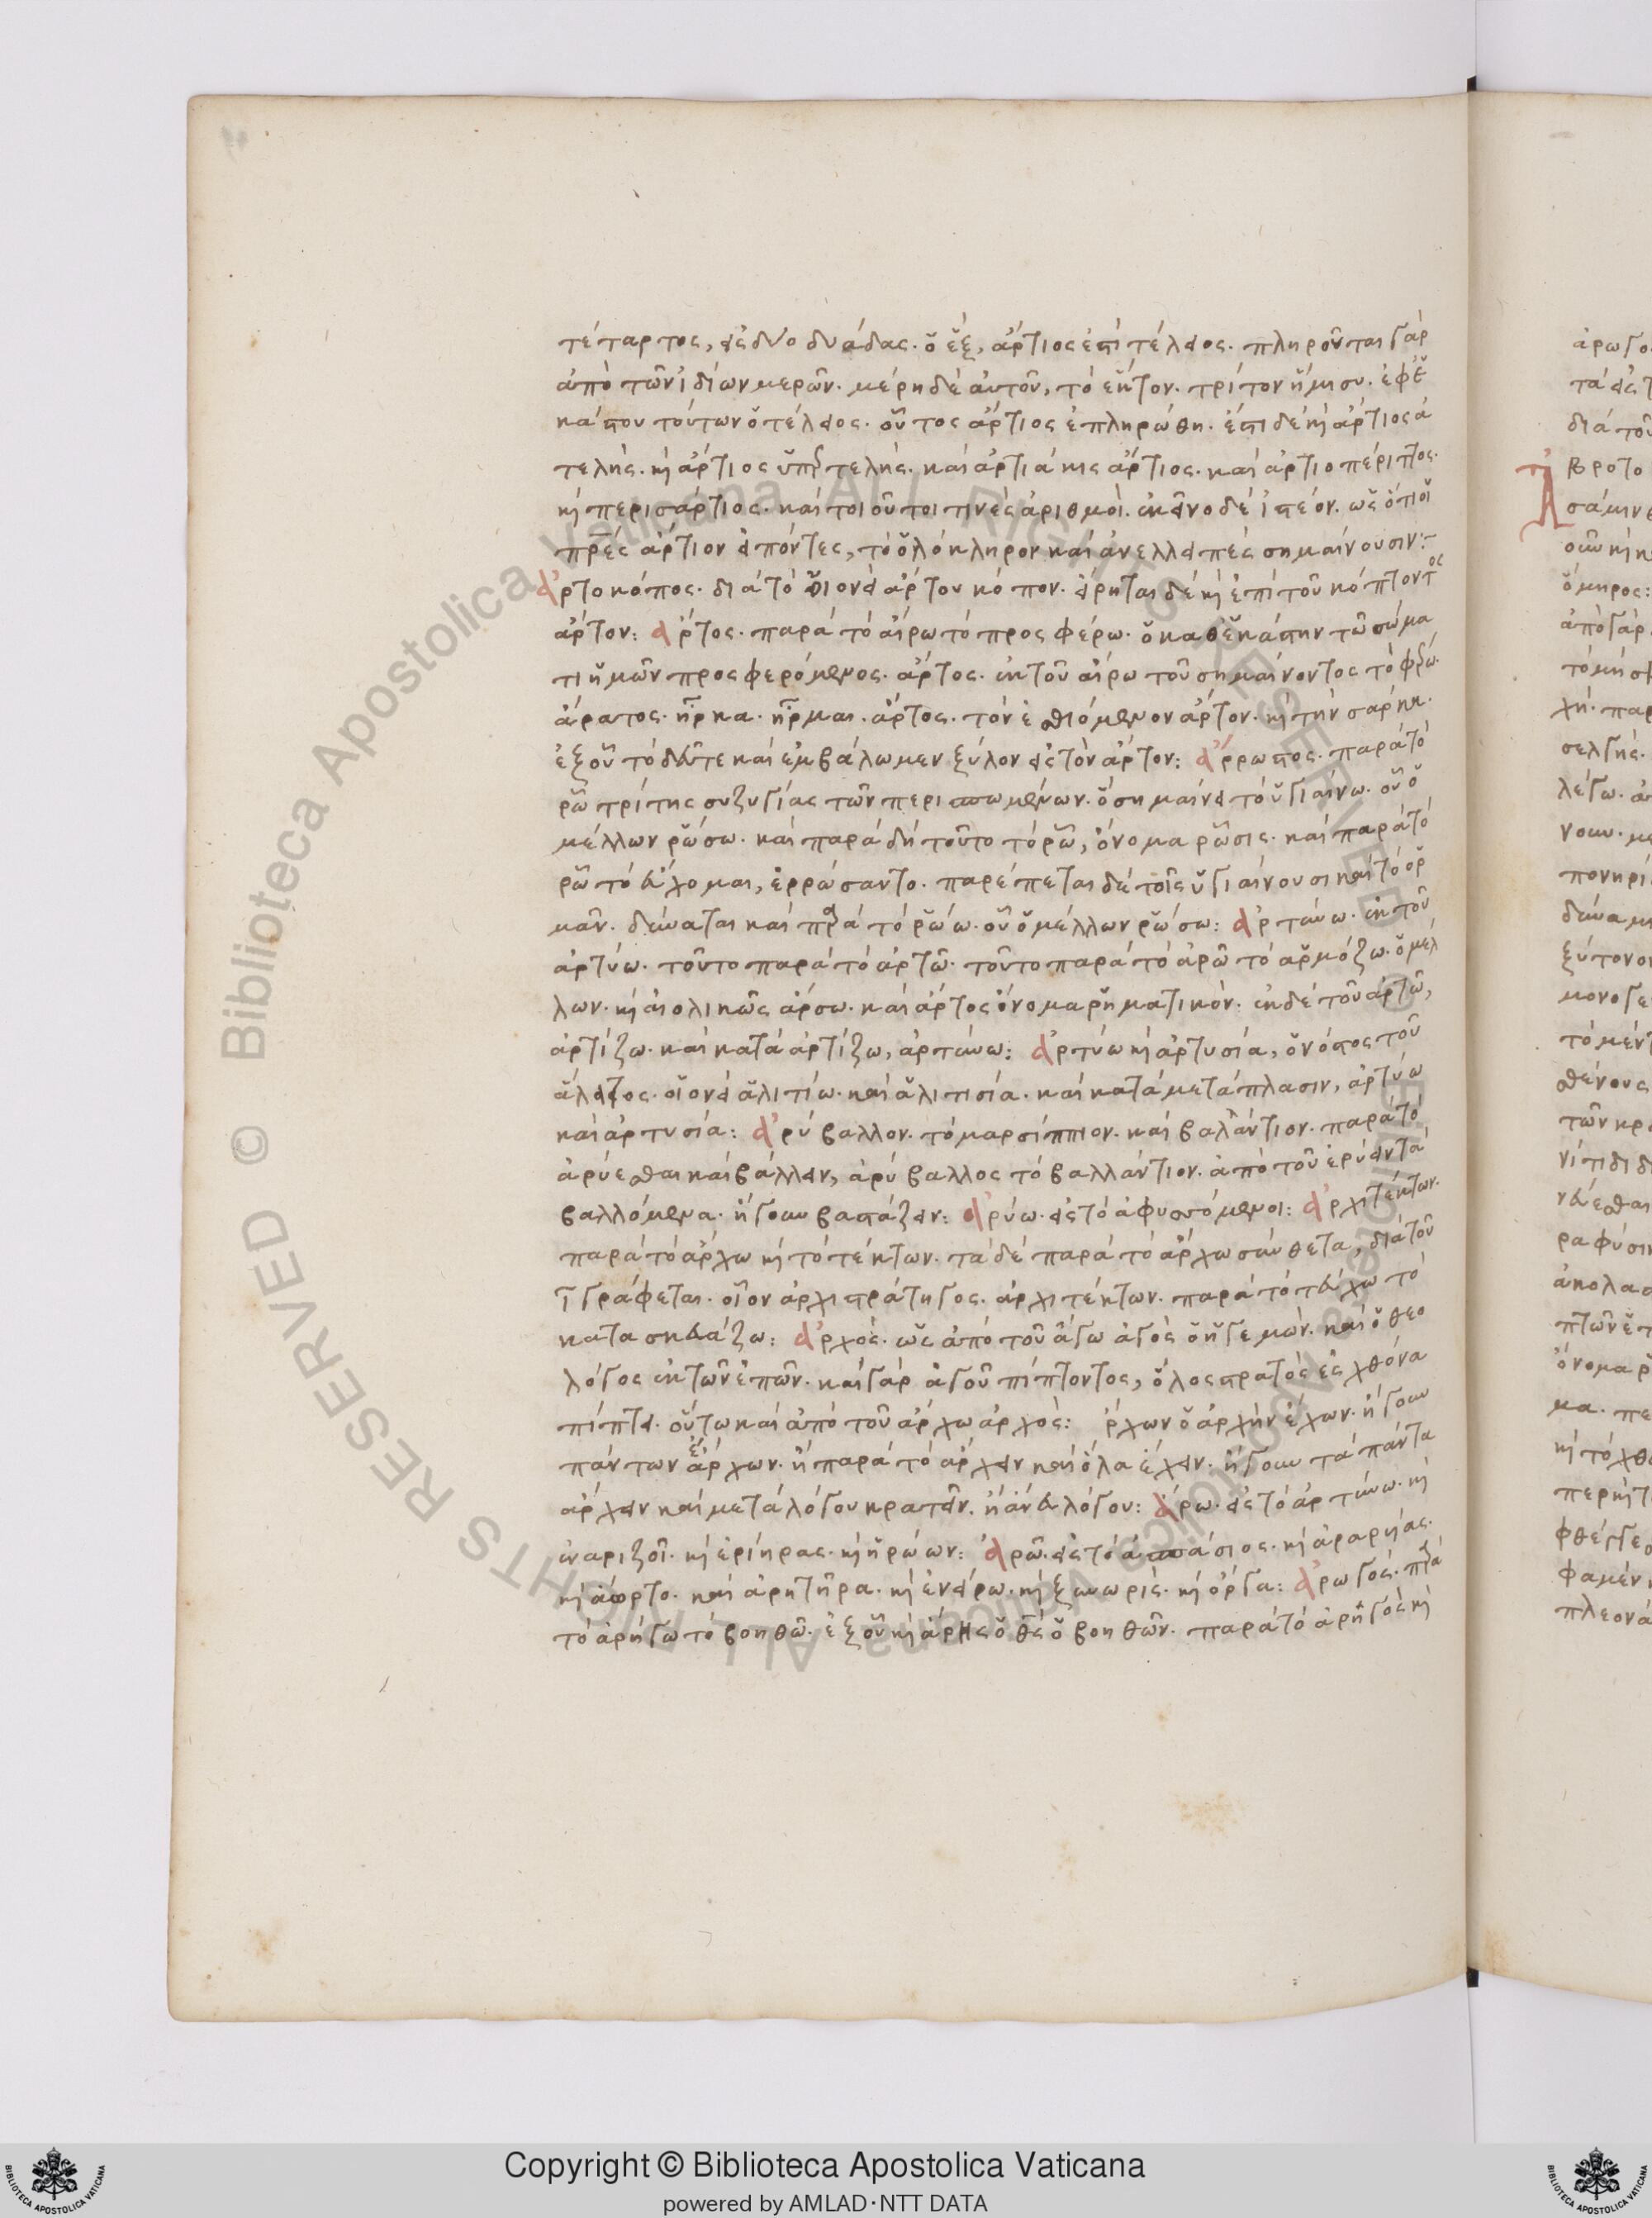 τέταρτος, εἰς δύο δυάδας. ὁ ἕξ, ἄρτιος ἐστὶ τέλειος. πληροῦται γὰρ
ἀπὸ τῶν ἰδίων μερῶν. μέρη δὲ αὐτοῦ, τὸ ἕκτον. τρίτον ἥμισυ. ἐφ' ἑ
κάστου τούτων ὁ τέλειος. οὗτος ἄρτιος ἐπληρώθη. ἔστι δὲ κὶ ἄρτιος ἀ
τελής. κὶ ἄρτιος ὑπερτελής. καὶ ἀρτιάκις ἄρτιος. καὶ ἀρτιοπέριττος.
κὶ περισάρτιος. καὶ τοιοῦτοι τινὲς ἀριθμοί. ἐκεῖνο δὲ ἰστέον. ὡς ὅτι οἱ
πρες ἄρτιον εἰπόντες, τὸ ὁλόκληρον καὶ ἀνελλειπὲς σημαίνουσιν:
ἀρτοκόπος. διὰ τὸ οἱονεὶ ἄρτου κόπον. εἴρηται δὲ κὶ ἐπὶ τοῦ κόπτοντος
ἄρτον: ἄρτος. παρὰ τὸ αἴρω τὸ προσφέρω. ὁ καθ' ἑκάστην τῶ σώμα
τι ἡμῶν προσφερόμενος. ἄρτος. ἐκ τοῦ αἴρω τοῦ σημαίνοντος τὸ φέρω.
ἄρατος. ἦρκα. ἦρμαι. ἄρτος. τὸν ἐσθιόμενον ἄρτον. κὶ τὴν σάρκα.
ἐξ οὗ τὸ δεῦτε καὶ ἐμβάλωμεν ξύλον εἰς τὸν ἄρτον: ἄρρωστος. παρὰ τὸ
ρῶ τρίτης συζυγίας τῶν περισπωμένων. ὃ σημαίνει τὸ ὑγιαίνω. οὗ ὁ
μέλλων ρώσω. καὶ παρὰ δὴ τοῦτο τὸ ρῶ, ὄνομα ρῶσις. καὶ παρὰ τὸ
ρῶ τὸ εὔχομαι, ἐρρώσαντο. παρέπεται δὲ τοῖς ὑγιαίνουσι καὶ τὸ ὁρ
μᾶν. δύναται καὶ παρὰ τὸ ρώω. οὗ ὁ μέλλων ρώσω: ἀρτύνω. ἐκ τοῦ
ἀρτύω. τοῦτο παρὰ τὸ ἀρτῶ. τοῦτο παρὰ τὸ ἀρῶ τὸ ἁρμόζω. ὁ μέλ
λων. κὶ αἰολικῶς ἄρσω. καὶ ἄρτος ὄνομα ρηματικόν. ἐκ δὲ τοῦ ἀρτῶ,
ἀρτίζω. καὶ κατὰ ἀρτίζω, ἀρτύνω: ἀρτύω κὶ ἀρτυσία, ὁ νόστος τοῦ
ἅλατος. οἱονεὶ ἁλιτίω. καὶ ἁλιτισία. καὶ κατὰ μετάπλασιν, ἀρτύω
καὶ ἀρτυσία: ἀρύβαλλον. τὸ μαρσίππιον. καὶ βαλάντιον. παρὰ τὸ
ἀρύεσθαι καὶ βάλλειν, ἀρύβαλλος τὸ βαλλάντιον. ἀπὸ τοῦ ἐρύειν τὰ
βαλλόμενα. ἤγουν βαστάζειν: ἀρύω. εἰς τὸ ἀφυσσόμενοι: ἀρχιτέκτων.
παρὰ τὸ ἄρχω κὶ τὸ τέκτων. τὰ δὲ παρὰ τὸ ἄρχω σύνθετα, διὰ τοῦ
ι γράφεται. οἷον ἀρχιστράτηγος. ἀρχιτέκτων. παρὰ τὸ τεύχω τὸ
κατασκευάζω: ἀρχός. ὡς ἀπὸ τοῦ ἄγω ἀγὸς ὁ ἡγεμών. καὶ ὁ θεο
λόγος ἐκ τῶν ἐπῶν. καὶ γὰρ ἀγοῦ πίπτοντος, ὅλος στρατὸς ἐς χθόνα
πίπτει. οὕτω καὶ ἀπὸ τοῦ ἄρχω ἀρχός: ρχων ὁ ἀρχὴν ἔχων. ἤγουν
πάντων ἐξάρχων. ἢ παρὰ τὸ ἄρχειν καὶ ὅλα ἔχειν. ἤγουν τὰ πάντα
ἄρχειν καὶ μετὰ λόγου κρατεῖν. ἢ ἄνευ λόγου: ἄρω. εἰς τὸ ἀρτύνω. κὶ
ἐναριζοι. κὶ ἐρίηρας. κὶ ἡρώων: ἀρῶ. εἰς τὸ ἀσπάσιος. κὶ ἀραρυίας.
κὶ ἄορτο. καὶ ἀρητῆρα. κὶ ἐνάρω. κὶ ξυνωρίς. κὶ ὄργα: ἀρωγός. παρὰ
τὸ ἀρήγω τὸ βοηθῶ. ἐξ οὗ κὶ ἄρης ὁ θεὸς ὁ βοηθῶν. παρὰ τὸ ἀρηγὸς κὶ
Copyright © Biblioteca Apostolica Vaticana
powered by AMLAD·NTT DATA